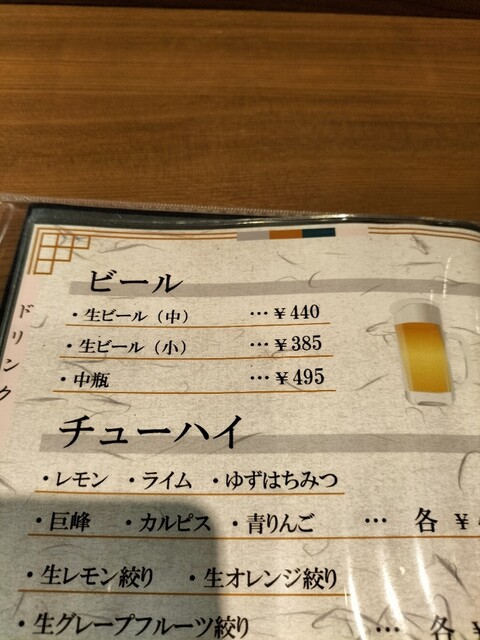 ドリンク
ビール
・生ビール（中） …￥440
・生ビール（小） …￥385
・中瓶 …￥495
チューハイ
・レモン ・ライム ・ゆずはちみつ
・巨峰 ・カルピス ・青りんご … 各 ￥
・生レモン絞り ・生オレンジ絞り
・生グレープフルーツ絞り … 各 ￥